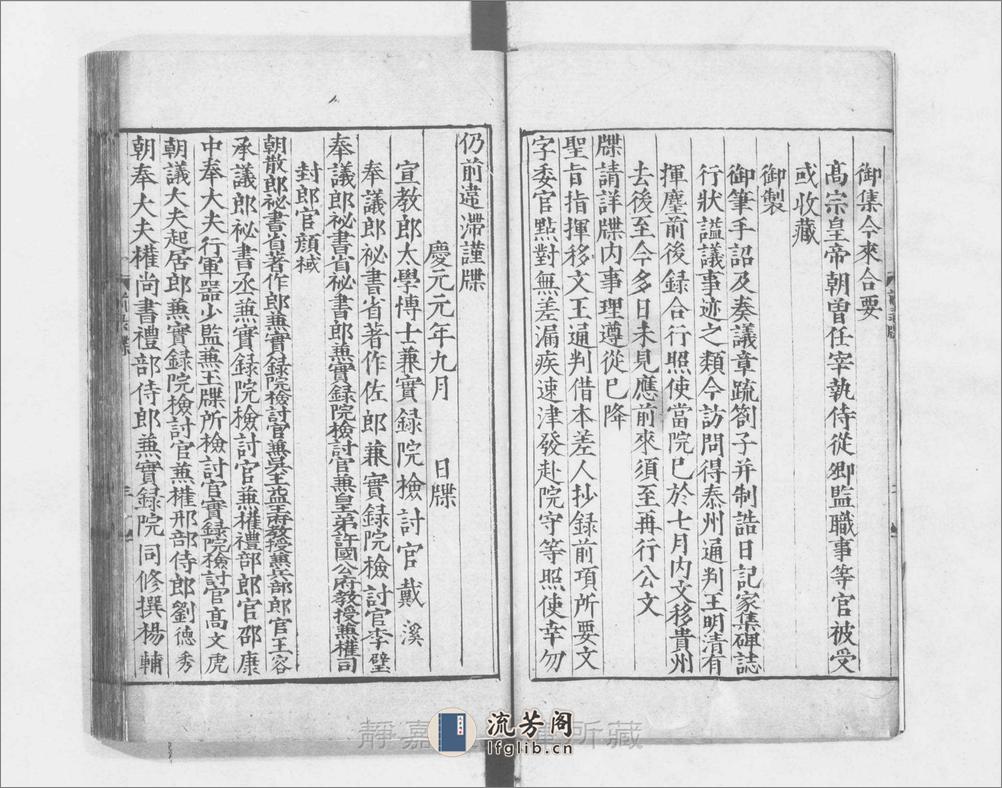 御集今來合要
髙宗皇帝朝曽任宰執侍從卿監職事等官被受
或收藏
御製
御筆手詔及奏議章疏劄子并制誥日記家集碑誌
行狀謚議事迹之類今訪問得泰州通判王明清有
揮麈前後録合行照使當院已於七月内文移貴州
去後至今多日未見應前來須至再行公文
牒請詳牒内事理遵從已降
聖旨指揮移文王通判借本差人抄録前項所要文
字委官點對無差漏疾速津發赴院守等照使幸勿
仍前違滯謹牒
慶元元年九月 日牒
宣教郎太學博士兼實録院檢討官戴溪
奉議郎祕書省著作佐郎兼實録院檢討官李壁
奉議郎祕書省祕書郎兼實録院檢討官兼皇弟許國公府教授兼權司
封郎官顔棫
朝散郎祕書省著作郎兼實録院檢討官兼吳王益王府教授兼兵部郎官王容
承議郎祕書丞兼實録院檢討官兼權禮部郎官邵康
中奉大夫行軍器少監兼玉牒所檢討官實録院檢討官髙文虎
朝議大夫起居郎兼實録院檢討官兼權刑部侍郎劉德秀
朝奉大夫權尚書禮部侍郎兼實録院同修撰楊輔
靜嘉 所藏
流芳阁
lfglib.cn